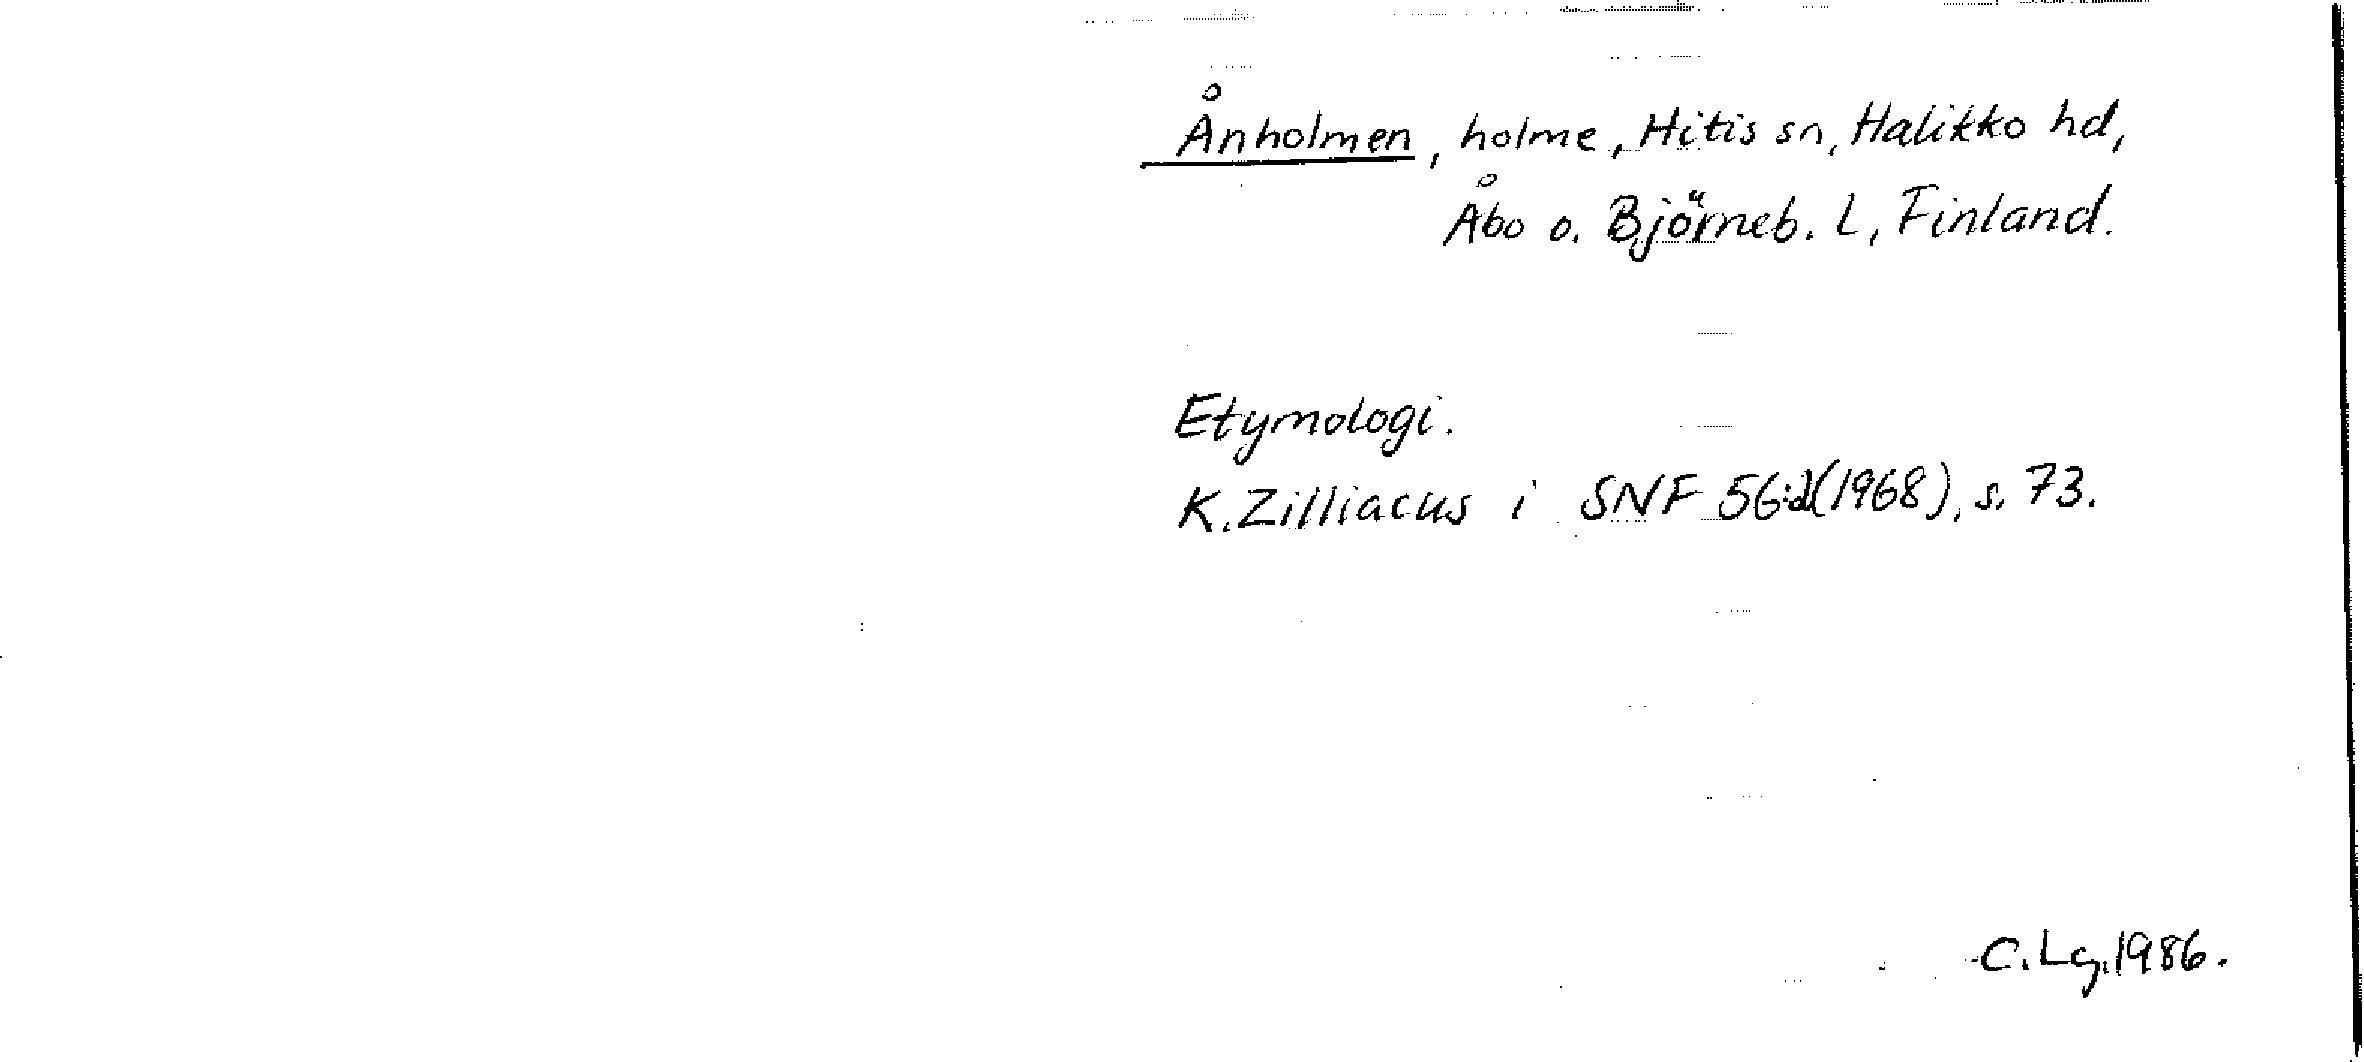 Ånholmen, holme, Hitis sn, Halikko hd,
Åbo o. Björneb. L, Finland.
Etymologi.
K. Zilliacus i SNF 56:2(1968), s. 73.
C. Lg. 1986.